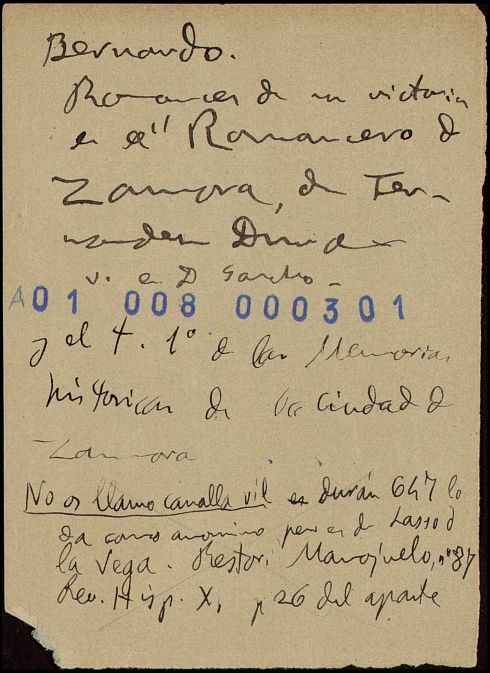 Bernardo.
Romances de su victoria
en el "Romancero de
Zamora, de Fer-
nandez Duro
v. en D Sancho -
A01 008 000301
y el t. 1º de las Memorias
históricas de la Ciudad de
Zamora
No os llamo canalla vil es durán 647 lo
da como anonimo pero es de Lasso de
la Vega. Restori Manojuelo, nº 87
Rev. Hisp. X, p 26 del aparte